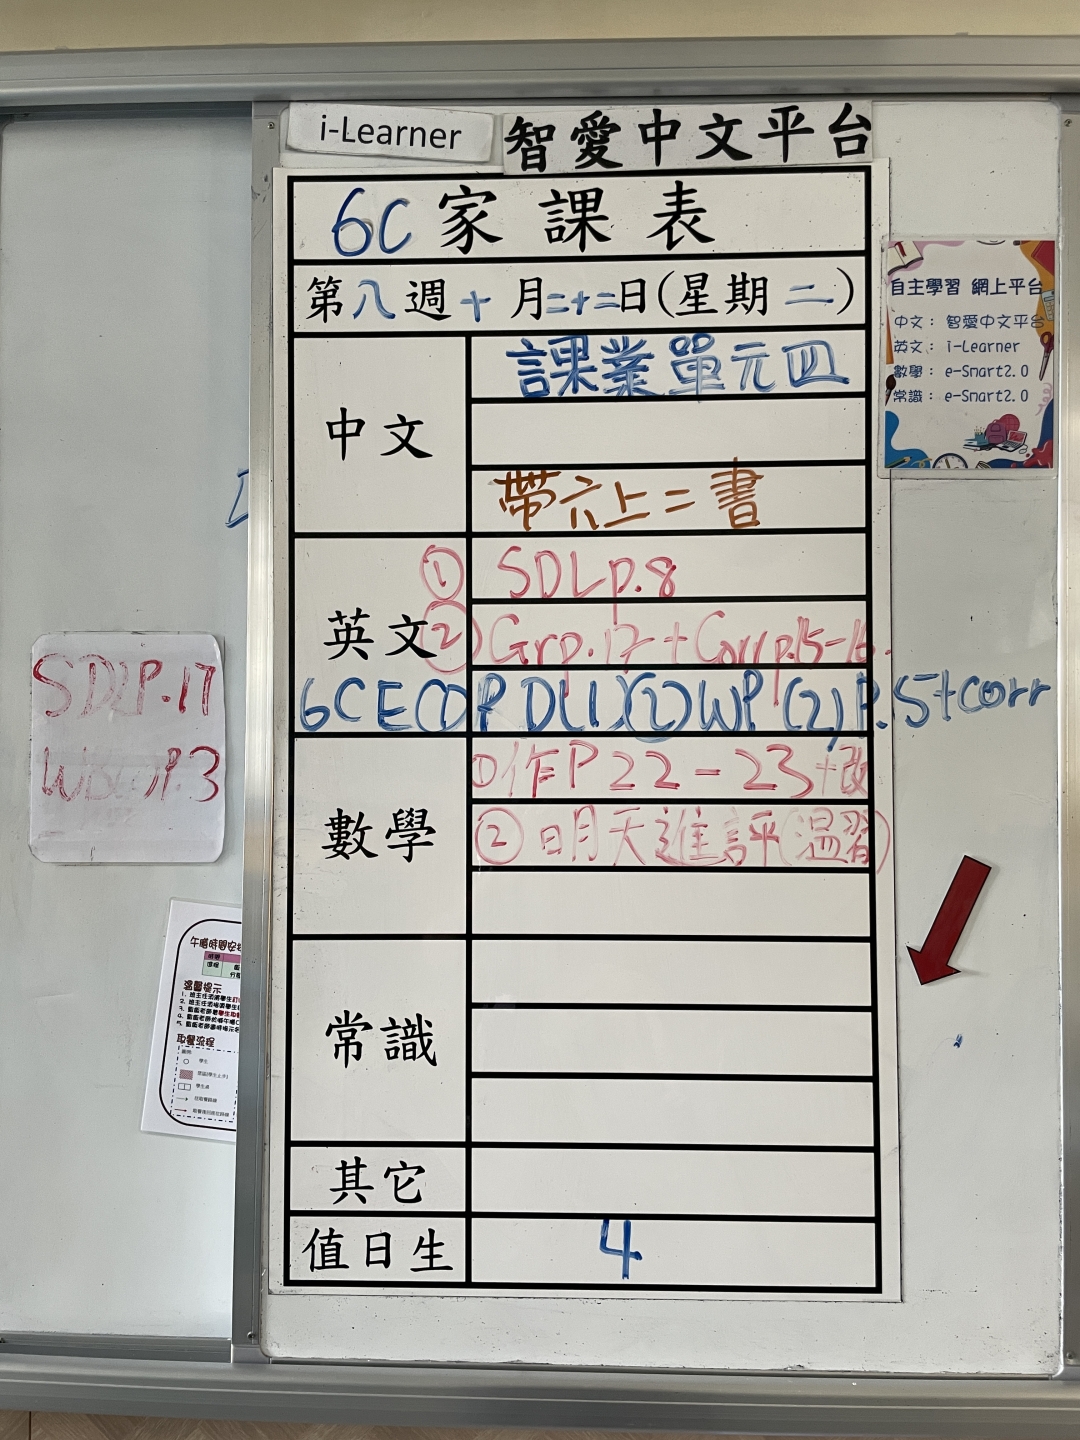 i-Learner 智愛中文平台
6C 家課表
第八週十月二十二日(星期二)
中文
課業單元四
帶六上二書
英文
① SDL p.8
② Gr p.17 + Corr p.15-16
6CE (1) P DL(1)(2) WP (2) P.15+corr
數學
①作P22-23+改
②明天進評(溫習)
常識
其它
值日生
4
自主學習 網上平台
中文： 智愛中文平台
英文： i-Learner
數學： e-Smart2.0
常識： e-Smart2.0
SDL P.17
P.3
午膳時間安排
溫馨提示
取餐流程
學生